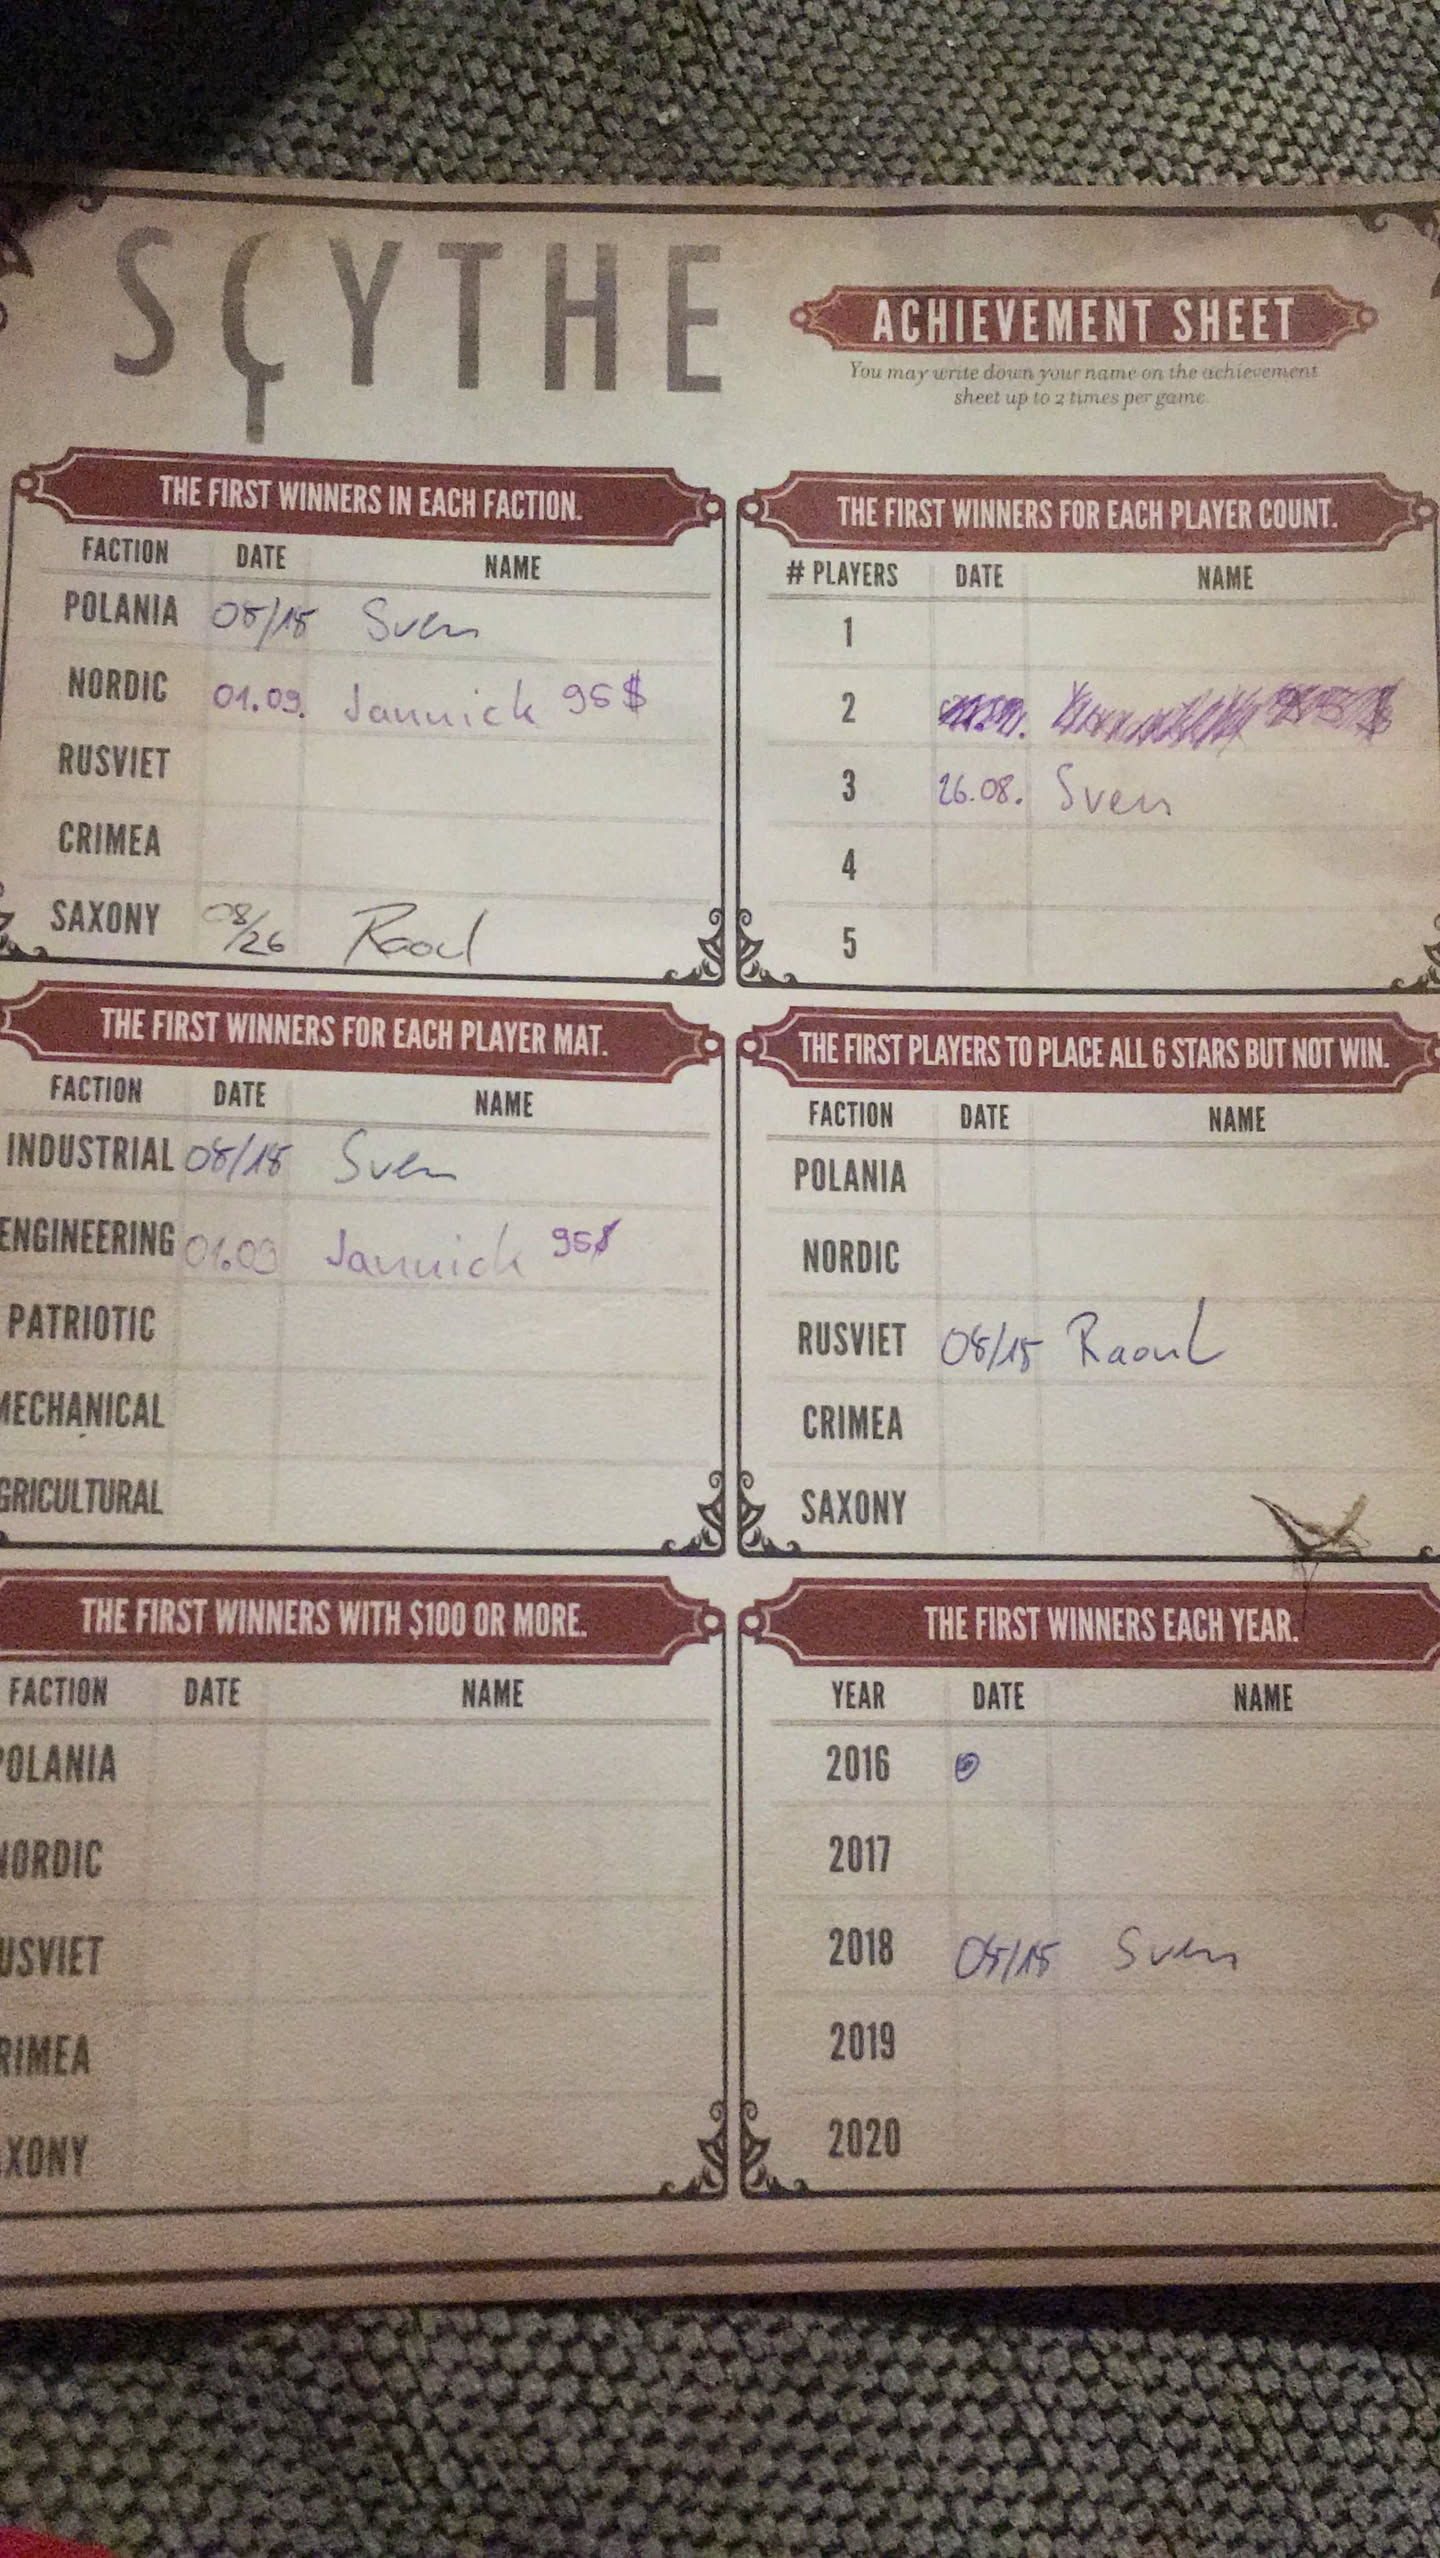 SCYTHE
ACHIEVEMENT SHEET
You may write down your name on the achievement
sheet up to 2 times per game.
THE FIRST WINNERS IN EACH FACTION.
FACTION DATE NAME
POLANIA 08/18 Sven
NORDIC 01.09. Jannick 95$
RUSVIET
CRIMEA
SAXONY 08/26 Raoul
THE FIRST WINNERS FOR EACH PLAYER COUNT.
# PLAYERS DATE NAME
1
2
3 26.08. Sven
4
5
THE FIRST WINNERS FOR EACH PLAYER MAT.
FACTION DATE NAME
INDUSTRIAL 08/18 Sven
ENGINEERING 01.09 Jannick 95$
PATRIOTIC
MECHANICAL
GRICULTURAL
THE FIRST PLAYERS TO PLACE ALL 6 STARS BUT NOT WIN.
FACTION DATE NAME
POLANIA
NORDIC
RUSVIET 08/18 Raoul
CRIMEA
SAXONY
THE FIRST WINNERS WITH $100 OR MORE.
FACTION DATE NAME
POLANIA
NORDIC
USVIET
RIMEA
XONY
THE FIRST WINNERS EACH YEAR.
YEAR DATE NAME
2016
2017
2018 08/18 Sven
2019
2020